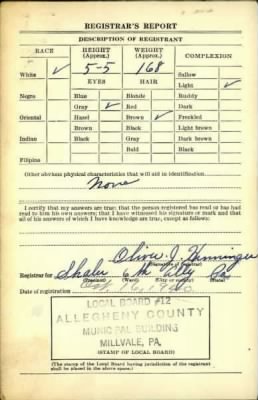 REGISTRAR'S REPORT
DESCRIPTION OF REGISTRANT
RACE HEIGHT (Approx.) WEIGHT (Approx.) COMPLEXION
White ✓ 5-5 168 Sallow
EYES HAIR Light ✓
Negro Blue Blonde Ruddy
Gray ✓ Red Dark
Oriental Hazel Brown ✓ Freckled
Brown Black Light brown
Indian Black Gray Dark brown
Bald Black
Filipino
Other obvious physical characteristics that will aid in identification
None
I certify that my answers are true; that the person registered has read or has had
read to him his own answers; that I have witnessed his signature or mark and that
all of his answers of which I have knowledge are true, except as follows:
Oliver J. Henninger
(Signature of registrar)
Registrar for Shaler 6th Ally Pa
(Precinct) (Ward) (City or county) (State)
Date of registration Oct. 16, 1940
LOCAL BOARD #12
ALLEGHENY COUNTY
MUNICIPAL BUILDING
MILLVALE, PA.
(STAMP OF LOCAL BOARD)
(The stamp of the Local Board having jurisdiction of the registrant
shall be placed in the above space.)